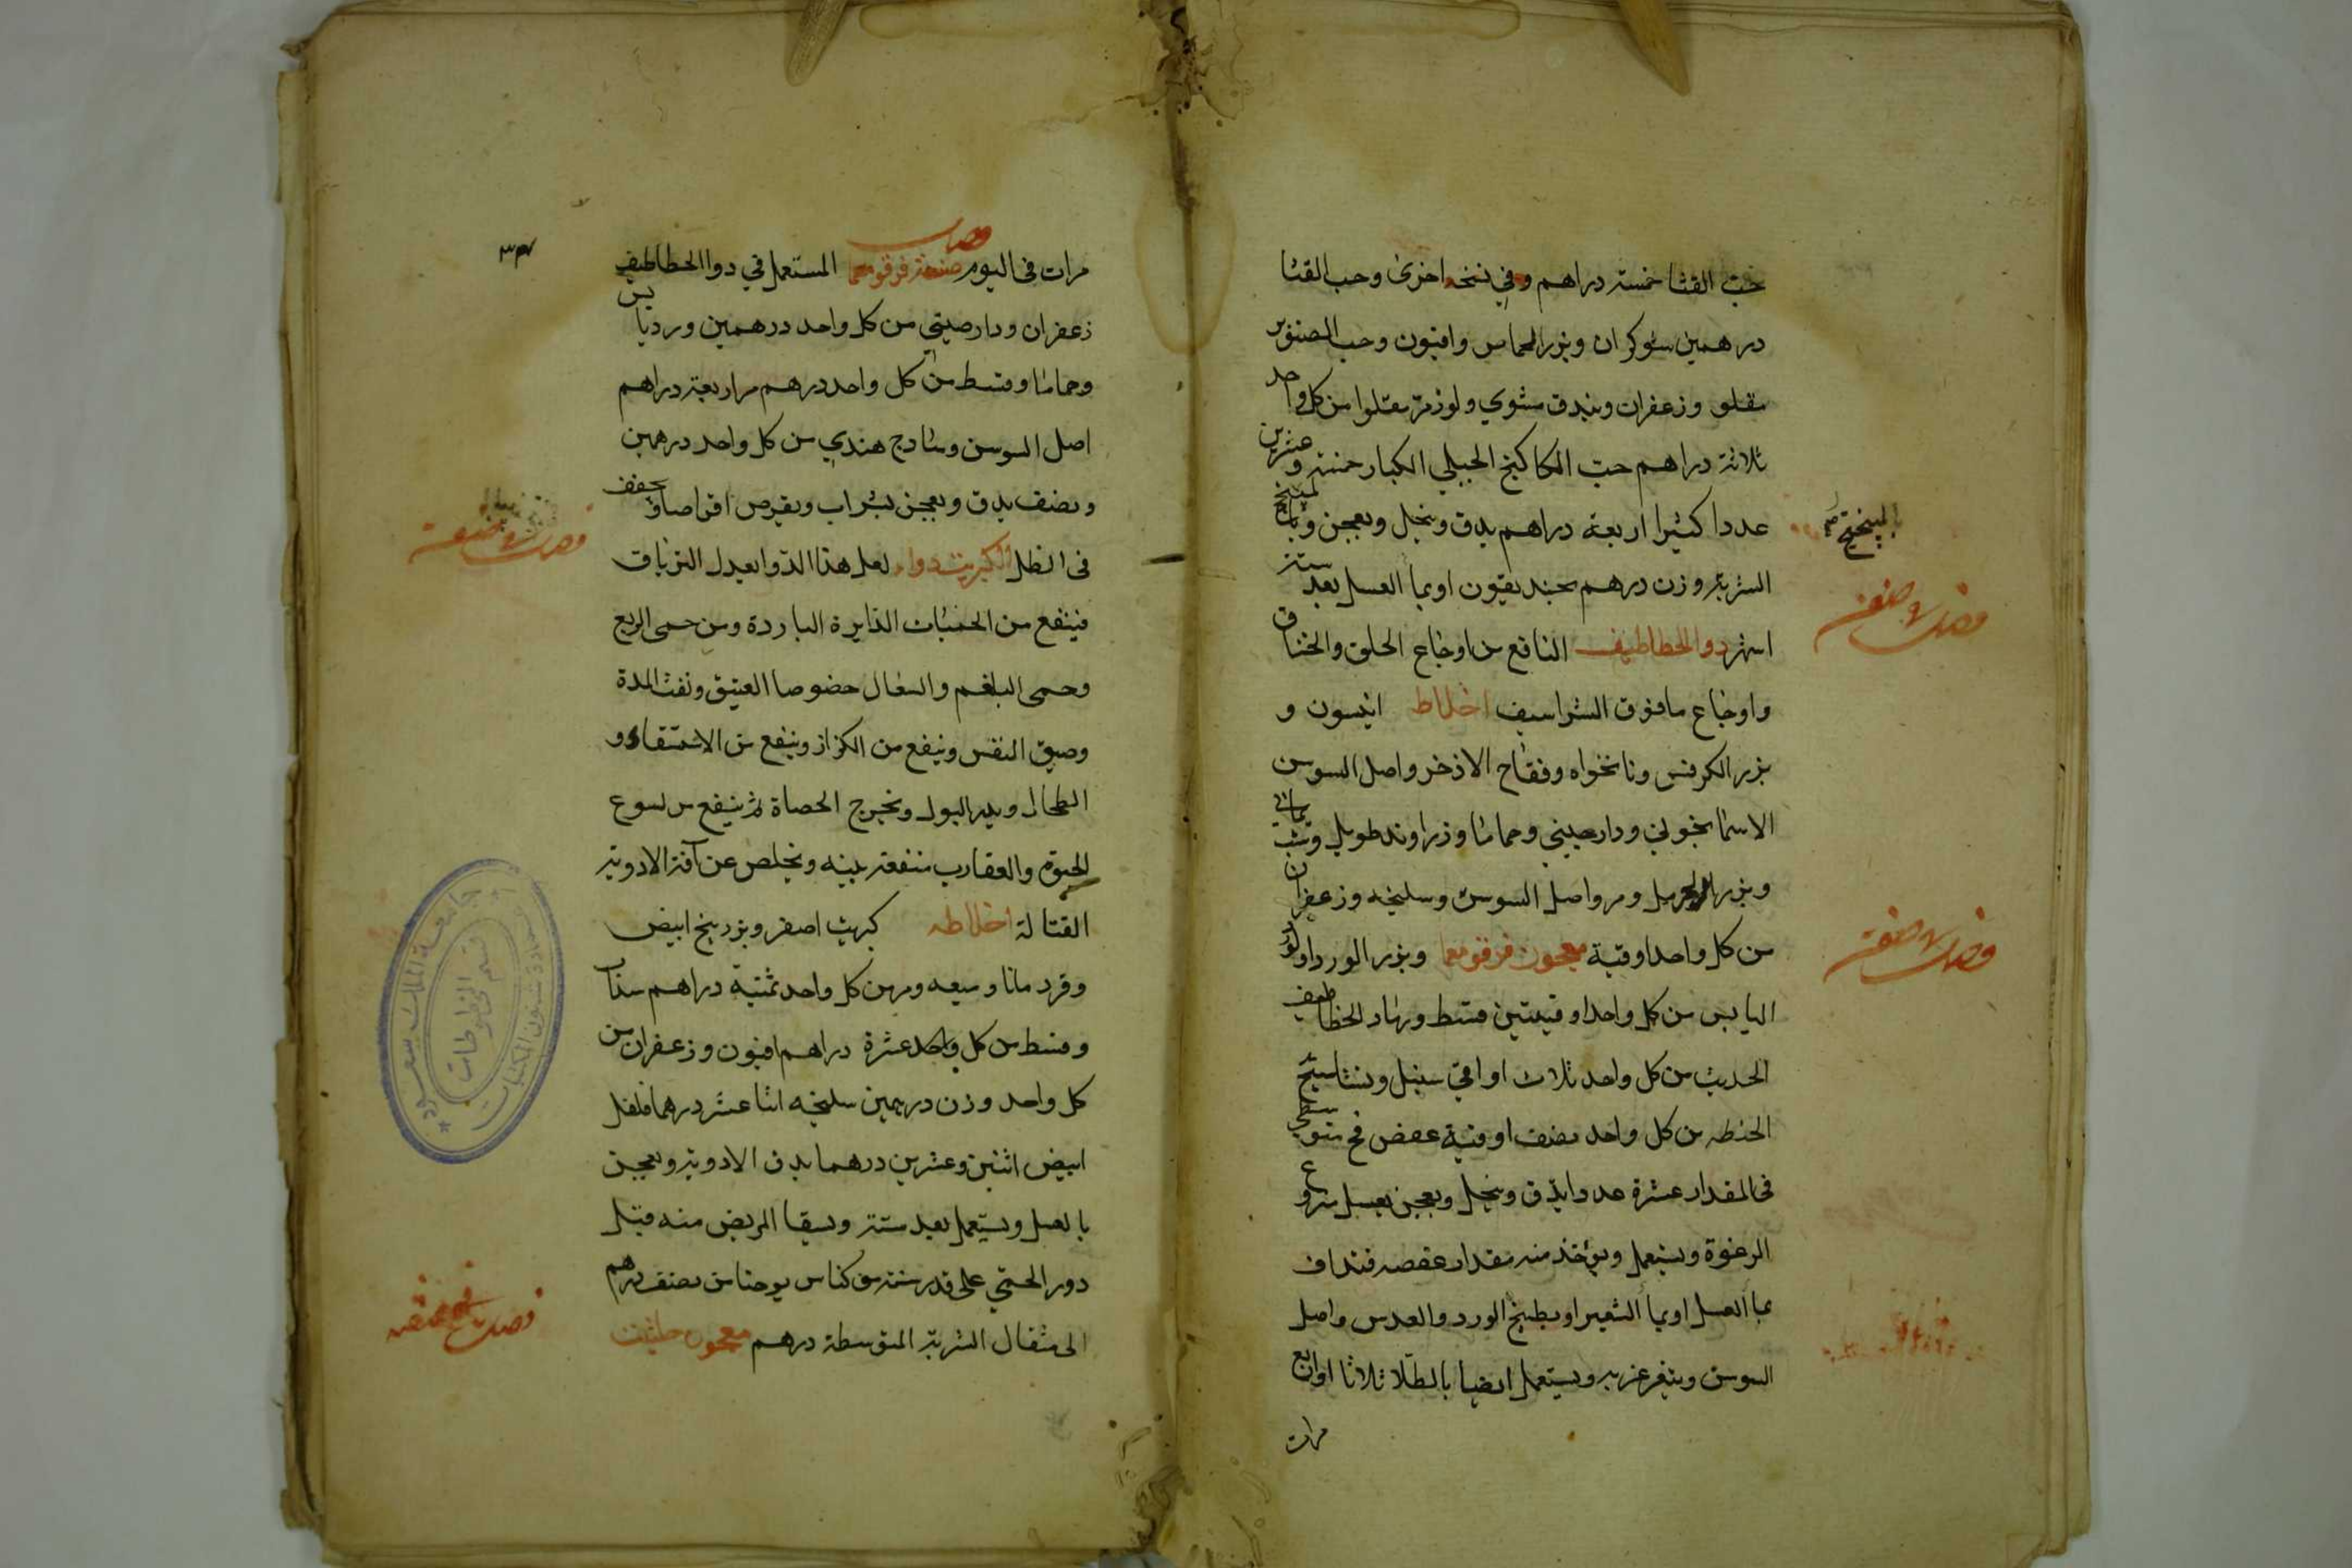 حب القثا خمسة دراهم وفي نسخه اخرى وحب القثا
درهمين شوكران وبزر الحماض وافيون وحب الصنوبر
مقلو وزعفران وبندق مشوي ولوز مر مقلوا من كل واحد
ثلاثة دراهم حب الكاكنج الجبلي الكبار خمسة وعشرين
عددا كثيرا اربعة دراهم يدق وينخل ويعجن
الشربة وزن درهم بجنديقون او بما العسل بعد ستة
اشهر دوا الخطاطيف النافع من اوجاع الحلق والخناق
واوجاع مافوق الشراسيف اخلاط انيسون و
بزر الكرفس ونانخواه وفقاح الاذخر واصل السوسن
الاسمانجوني ودارصيني وحماما وزراوند طويل وشب يماني
وبزر الحرمل ومر واصل السوسن وسليخه وزعفران
من كل واحد اوقية معجون قرقومعما وبزر الورد اوالورد
اليابس من كل واحد اوقيتين قسط ورماد الخطاطيف
الحديث من كل واحد ثلاث اواقي سنبل ونشاستج
الحنطه من كل واحد نصف اوقية عفص فج متوسطي
في المقدار عشرة عددا يدق وينخل ويعجن بعسل منزوع
الرغوة ويستعمل ويؤخذ منه مقدار عفصه فتداف
بما العسل او بما الشعير او بطبيخ الورد والعدس واصل
السوسن ويتغرغر به ويستعمل ايضا بالطلا ثلاثا او اربع
مرات
بالميبختج صح
فصل في صنعة
فصل في صنعة
٣٤
مرات في اليوم فصل صنعة قرقومعما المستعمل في دوا الخطاطيف
زعفران ودارصيني من كل واحد درهمين ورد يابس
وحماما وقسط من كل واحد درهم مر اربعة دراهم
اصل السوسن وساذج هندي من كل واحد درهمين
ونصف يدق ويعجن بشراب ويقرص اقراصا ويجفف
في الظل الكبريت دواء لعل هذا الدوا يعدل الترياق
فينفع من الحميات الدايرة الباردة ومن حمى الربع
وحمى البلغم والسعال خصوصا العتيق ونفث المدة
وضيق النفس وينفع من الكزاز وينفع من الاستسقاء و
الطحال ويدر البول ويخرج الحصاة ثم ينفع من لسوع
الحيوة والعقارب منفعة بينه ويخلص عن آفة الادوية
القتالة اخلاطه كبريت اصفر وبزر بنج ابيض
وقردمانا وميعه ومر من كل واحد ثمنية دراهم سذاب
وقسط من كل واحد عشرة دراهم افيون وزعفران من
كل واحد وزن درهمين سليخه اثنا عشر درهما فلفل
ابيض اثنين وعشرين درهما يدق الادوية ويعجن
بالعسل ويستعمل بعد ستة ويسقا المريض منه قبل
دور الحمى على قدر سنه من كناس يوحنا من نصف درهم
الى مثقال الشربة المتوسطة درهم معجون حلتيت
فصل في صنعة
جامعة الملك سعود
عمادة شئون المكتبات
قسم المخطوطات